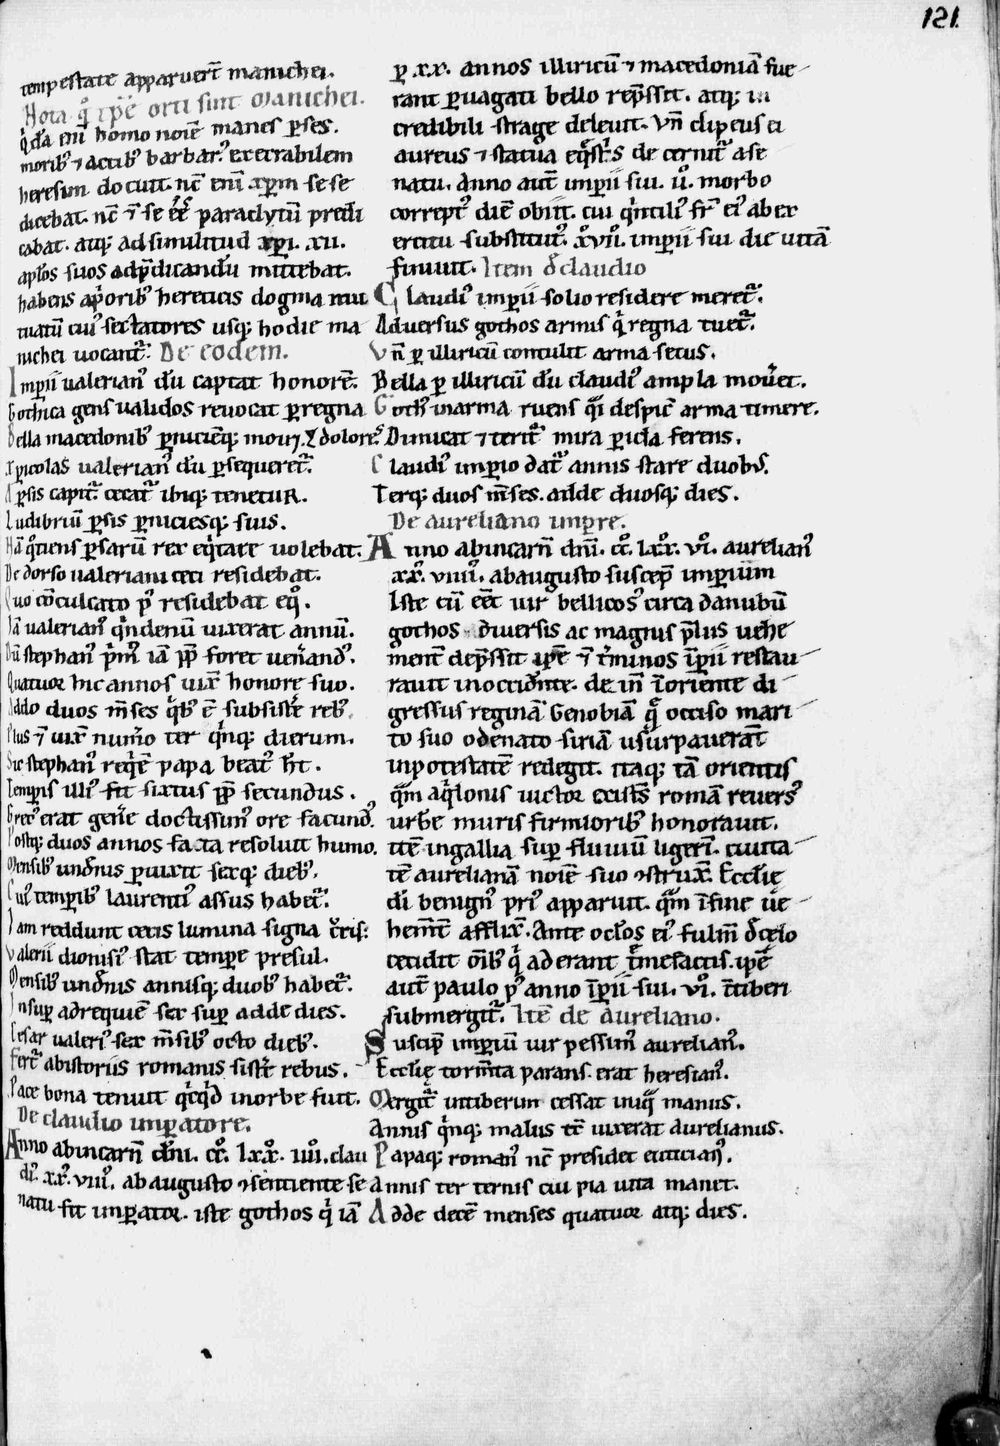 121.
tempestate apparuer̄t manichei.
Nota qͦ ipē orti sunt Manichei.
q̇da eni homo noīe manes ꝑses.
moribꝰ ⁊ actibꝰ barbarꝰ execrabilem
heresim docuit. nc̄ enī xp̄m se se
dicebat. nc̄ ⁊ se eē paraclytū predi
cabat. atq; ad similitud xp̄i. xii.
apl̄os suos ad p̄dicandū mittebat.
habens a p̓oribꝰ hereticis dogma mu
tuatū cuiꝰ sectatores usq; hodie ma
nichei uocant᷑. De eodem.
Imperii ualerianꝰ dū captat honorē.
Gothica gens ualidos reuocat ꝑ regna
Bella macedonibꝰ ꝑniciēq;
xp̄icolas ualerianꝰ dū ꝑsequeret᷑.
A ꝑsis capit᷑ cecat᷑ ibiq; tenetur.
Ludibriū ꝑsis ꝑniciesq; suis.
Nā qͦtiens ꝑsarū rex eq̇tare uolebat.
De dorso ualeriani ceci residebat.
Quo cōculcato pꝰ residebat eqͦ.
Iā ualerianꝰ q̇ndenū uixerat annū.
Dū stephanꝰ p̓mꝰ iā pp̄ foret uen̄andꝰ.
Quatuor hic annos uix̄ honore suo.
Addo duos m̄ses q̇bꝰ ē subsist̄e rebꝰ.
Plus ⁊ uix̄ num̄o ter q̇nq; dierum.
Sic stephanꝰ req̇ē papa beatꝰ h̄t.
Temꝑis illiꝰ fit sixtus pp̄ secundus.
Grecꝰ erat gen̄e doctissimꝰ ore facundꝰ.
Postq; duos annos facta resoluit humo.
Mensibꝰ undēnis ꝑuixit sexq; diebꝰ.
Cuiꝰ temꝑibꝰ laurentiꝰ assus habet᷑.
Iam reddunt cecis lumina signa c̓ris.
Valerii dionisiꝰ stat temꝑe presul.
Mensibꝰ undēnis annisq; duobꝰ habet᷑.
Insuꝑ ad requiē sex suꝑ adde dies.
Cesar ualeriꝰ sex m̄sibꝰ octo diebꝰ.
Fert᷑ ab istoriis romanis sist̄e rebus.
Pace bona tenuit q̇cq̇d in orbe fuit.
De claudio imꝑatore.
Anno ab incarn̄ dn̄i. cc̊. lxx̊. iiii̊. clau
diꝰ. xx̊. viii̊. ab augusto ⁊ sentiente se
natu fit imꝑator. iste gothos q̇ iā
ꝑ xx. annos illiricū ⁊ macedoniā fue
rant ꝑuagati bello rep̄ssit. atq; in
credibili strage deleuit. Vn̄ clipeus ei
aureus ⁊ statua eq̄st̓s decernit᷑ a se
natu. Anno aut̄ imperii sui. ii̊. morbo
correptꝰ diē obiit. cui q̇ntiliꝰ fr̄ eiꝰ ab ex
ercitu substitutꝰ. xvii̊. imperii sui die uitā
finiuit. Item d̄ claudio
Claudiꝰ imperii solio residere meret᷑.
Aduersus gothos armis q̇ regna tuet᷑.
Vn̄ ꝑ illiricū contulit arma secus.
Bella ꝑ illiricū dū claudiꝰ ampla mou̓et.
Gothꝰ in arma ruens q̄i despic̄ arma timere.
Dimicat ⁊ terit᷑ mira ꝑicla ferens.
Claudiꝰ imperio dat᷑ annis stare duobꝰ.
Terq; duos m̄ses. adde duosq; dies.
De aureliano impre.
Anno ab incarn̄ dn̄i. cc̊. lxx̊. vi̊. aurelianꝰ
xx̊. viiii̊. ab augusto suscep̄ imperium
Iste cū eēt uir bellicosꝰ circa danubiū
gothos diuersis ac magnis p̄lus uehe
ment̄ dep̄ssit ipē ⁊ t̓minos īperii restau
rauit in occid̄nte. dein̄ ī oriente di
gressus reginā Genobiā q̄ occiso mari
to suo odenato siriā usurpauerat̄
in potestatē redegit. itaq; tā orientis
q̄m aq̇lonis uictor existēs romā reuersꝰ
urbē muris firmioribꝰ honorauit.
itē in gallia suꝑ fluuiū ligerī. ciuita
tē aurelianā noīe suo ⁊struxit. Ecclię
di benignꝰ priꝰ apparuit. q̄m ī fine ue
hem̄t afflix̄. Ante oclōs eiꝰ fulm̄ d̄ celo
cecidit oībꝰ q̇ aderant t̓mefactis. ipē
aut̄ paulo pꝰ anno īperii sui. vi̊. ī tiberi
submergit᷑. Itē de Aureliano.
Suscip̄ imperiū uir pessimꝰ aurelianꝰ.
Ecclię torm̄ta parans. erat heresianꝰ.
Mergit᷑ in tiberim cessat iniq̄ manus.
Annis q̇nq; malus tc̄ uixerat aurelianus.
Papaq; romanꝰ nc̄ presidet euticianꝰ.
Annis ter ternis cui pia uita manet.
Adde decē menses quatuor atq; dies.